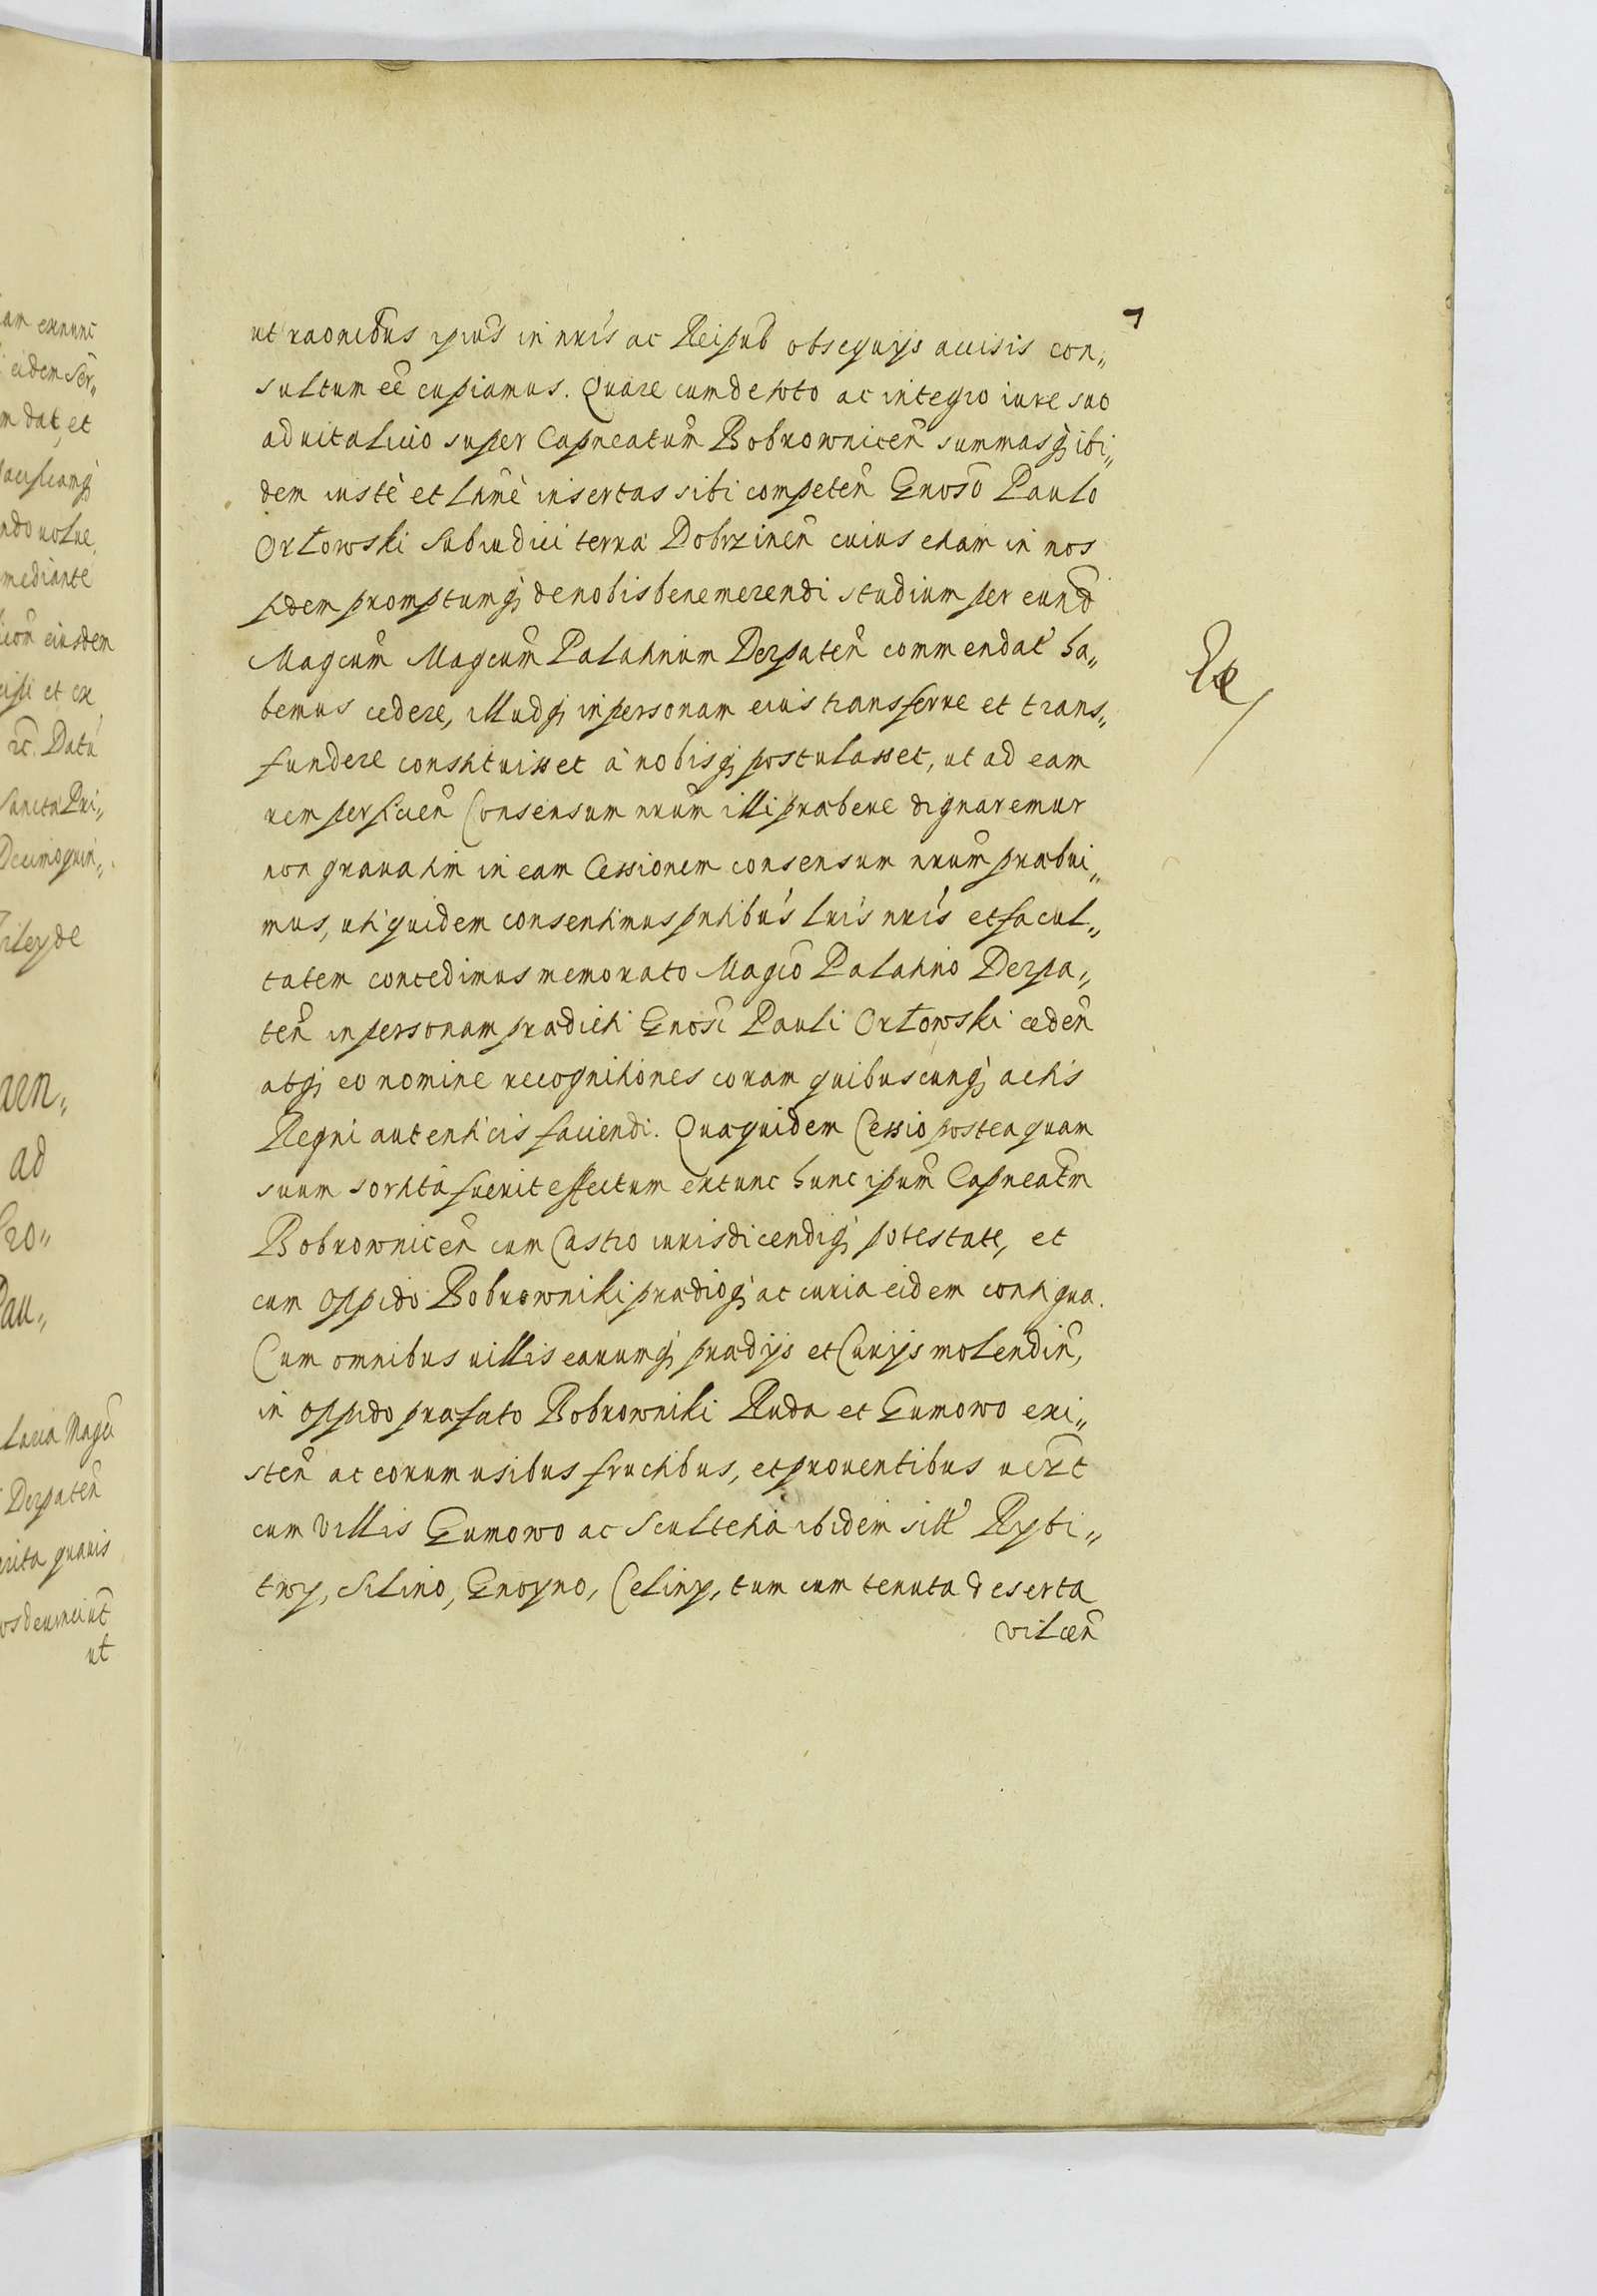 ut raonibus ipius in nris ac Reipub obsequijs accisis con„
sultum eẽ cupiamus. Quare cum de toto ac integro iure suo
aduitalicio super Capneatum Bobrownicen̄ summasq̨ ibi„
dem iustè et lṁè insertas sibi competen̄ Gnoso Paulo
Orłowski Subiudici terræ Dobrzinen̄ cuius etiam in nos
fidem promptumq̨ de nobis benemerendi studium per eund̃
Magcum Magcum Palatinum Derpaten̄ commendat̃ ha„
bemus cedere, illudq̨ in personam eius transferre et trans„
fundere constituisset à nobisq̨ postulasset, ut ad eam
rem perficien̄ Consensum nrum illi præbere dignaremur
non grauatim in eam Cessionem consensum nrum præbui„
mus, uti quidem consentimus pntibus lris nris et facul„
tatem concedimus memorato Magco Palatino Derpa„
ten̄ in personam prædicti Gnosi Pauli Orłowski ceden̄
atq̨ eo nomine recognitiones coram quibuscunq̨ actis
Regni autenticis faciendi. Quaquidem Cessio posteaquam
suum sortita fuerit effectum extunc hunc ipum Capneatm
Bobrownicen̄ cum Castro iurisdicendiq̨ potestate, et
cum oppido Bobrowniki prædioq̨ ac curia eidem contigua.
Cum omnibus uillis earumq̨ prædijs et Curijs molendin̄,
in oppido præfato Bobrowniki Ruda et Gumowo exi„
sten̄ ac eorum usibus fructibus, et prouentibus
cum Villis Gumowo ac Scultetia ibidem Rybi„
twy, Silino, Gnoyno, Celiny, tum cum tenuta deserta
vilcen̄